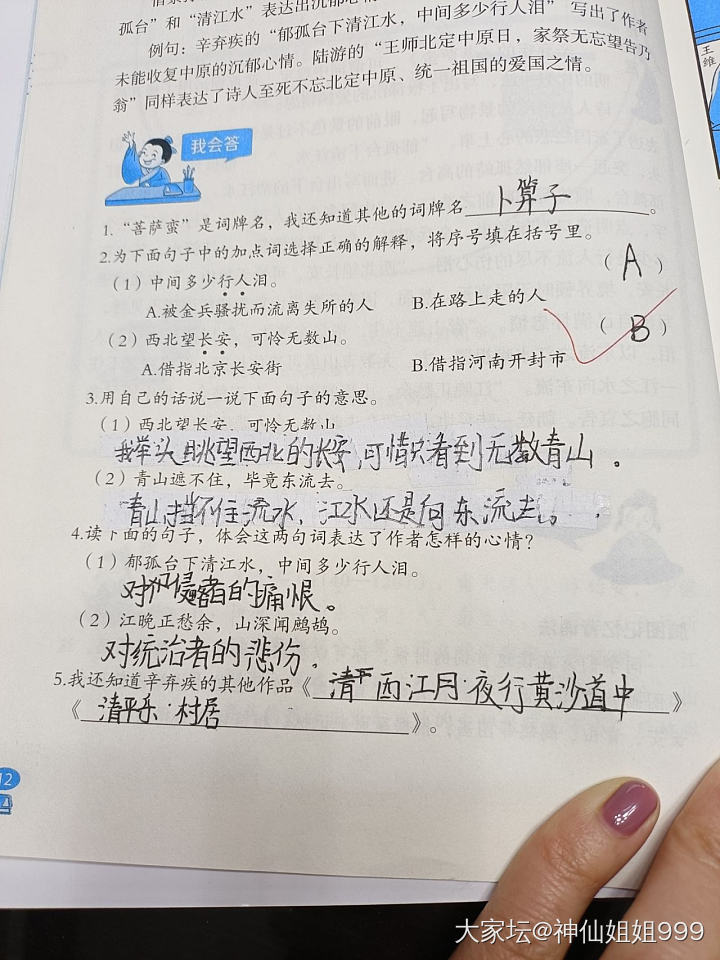 孤台”和“清江水”表达出沉郁心情
例句：辛弃疾的“郁孤台下清江水，中间多少行人泪”写出了作者
未能收复中原的沉郁心情。陆游的“王师北定中原日，家祭无忘告乃
翁”同样表达了诗人至死不忘北定中原、统一祖国的爱国之情。
王维
我会答
1.“菩萨蛮”是词牌名，我还知道其他的词牌名 卜算子 。
2.为下面句子中的加点词选择正确的解释，将序号填在括号里。
（1）中间多少行人泪。 （ A ）
A.被金兵骚扰而流离失所的人 B.在路上走的人
（2）西北望长安，可怜无数山。 （ B ）
A.借指北京长安街 B.借指河南开封市
3.用自己的话说一说下面句子的意思。
（1）西北望长安，可怜无数山
我举头眺望西北的长安，可惜只看到无数青山。
（2）青山遮不住，毕竟东流去。
青山挡不住流水，江水还是向东流去。
4.读下面的句子，体会这两句词表达了作者怎样的心情？
（1）郁孤台下清江水，中间多少行人泪。
对侵略者的痛恨。
（2）江晚正愁余，山深闻鹧鸪。
对统治者的悲伤。
5.我还知道辛弃疾的其他作品《 西江月·夜行黄沙道中 》
《 清平乐·村居 》。
12
大家坛@神仙姐姐999